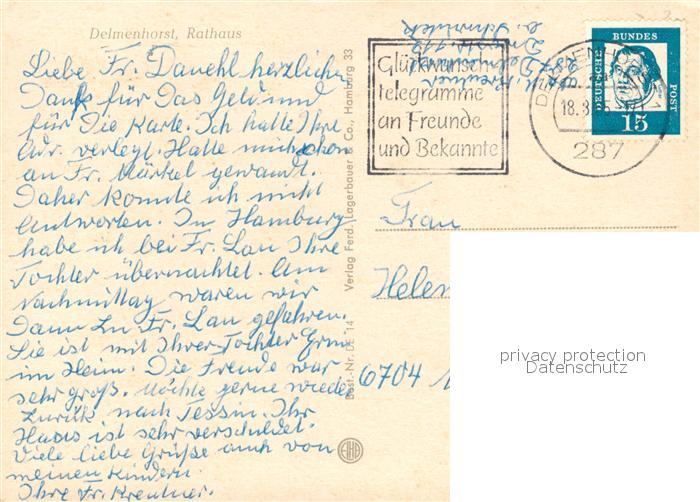 Delmenhorst, Rathaus
Liebe Fr. Dauehl herzlichen
Dank für Das Geld und
für Die Karte. Ich hatte Ihre
Adr. verlegt. Hatte mich schon
an Fr. Markel gewandt.
Daher konnte ich nicht
Antworten. In Hamburg
habe ich bei Fr. Lau Ihre
Tochter übernachtet. Am
Nachmittag waren wir
Dann zu Fr. Lau gefahren.
Sie ist mit Ihrer Tochter Erna
im Heim. Die Freude war
sehr groß. Möchte gerne wieder
Zurük nach Tessin. Ihr
Haus ist sehr verschuldet.
Viele liebe Grüße auch von
meinen Kindern.
Ihre Fr. Kreutner.
Verlag Ferd. Lagerbauer & Co., Hamburg 33
Best.-Nr. DE 14
Glückwunsch-
telegramme
an Freunde
und Bekannte
18.3
287
DEUTSCHE
BUNDES
POST
15
Frau
Helen
6704
privacy protection
Datenschutz